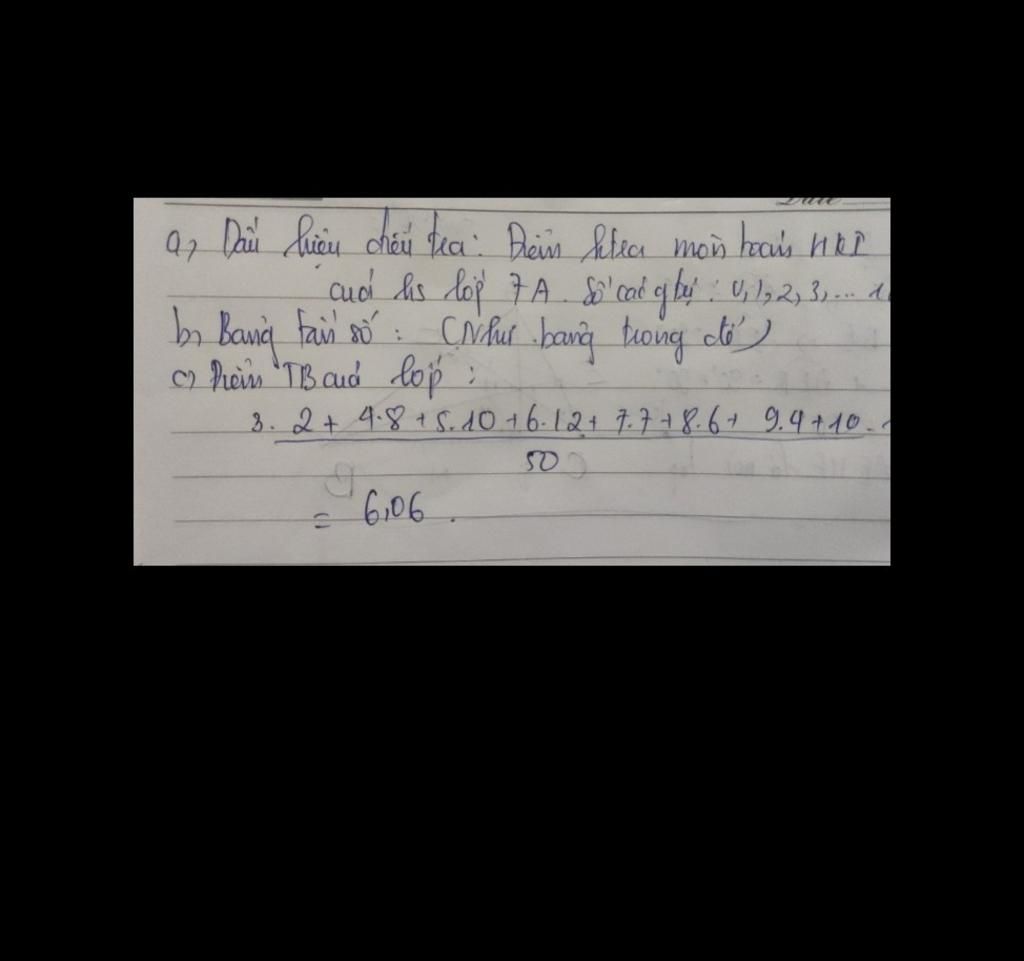 Date
a, Dấu hiệu điều tra: Điểm ktra môn toán HKI
của hs lớp 7A. Số các gtrị: 0, 1, 2, 3, ... 1
b, Bảng tần số: (Như bảng trong đề)
c) Điểm TB của lớp:
3. 2 + 4.8 + 5.10 + 6.12 + 7.7 + 8.6 + 9.4 + 10.
50
= 6,06.